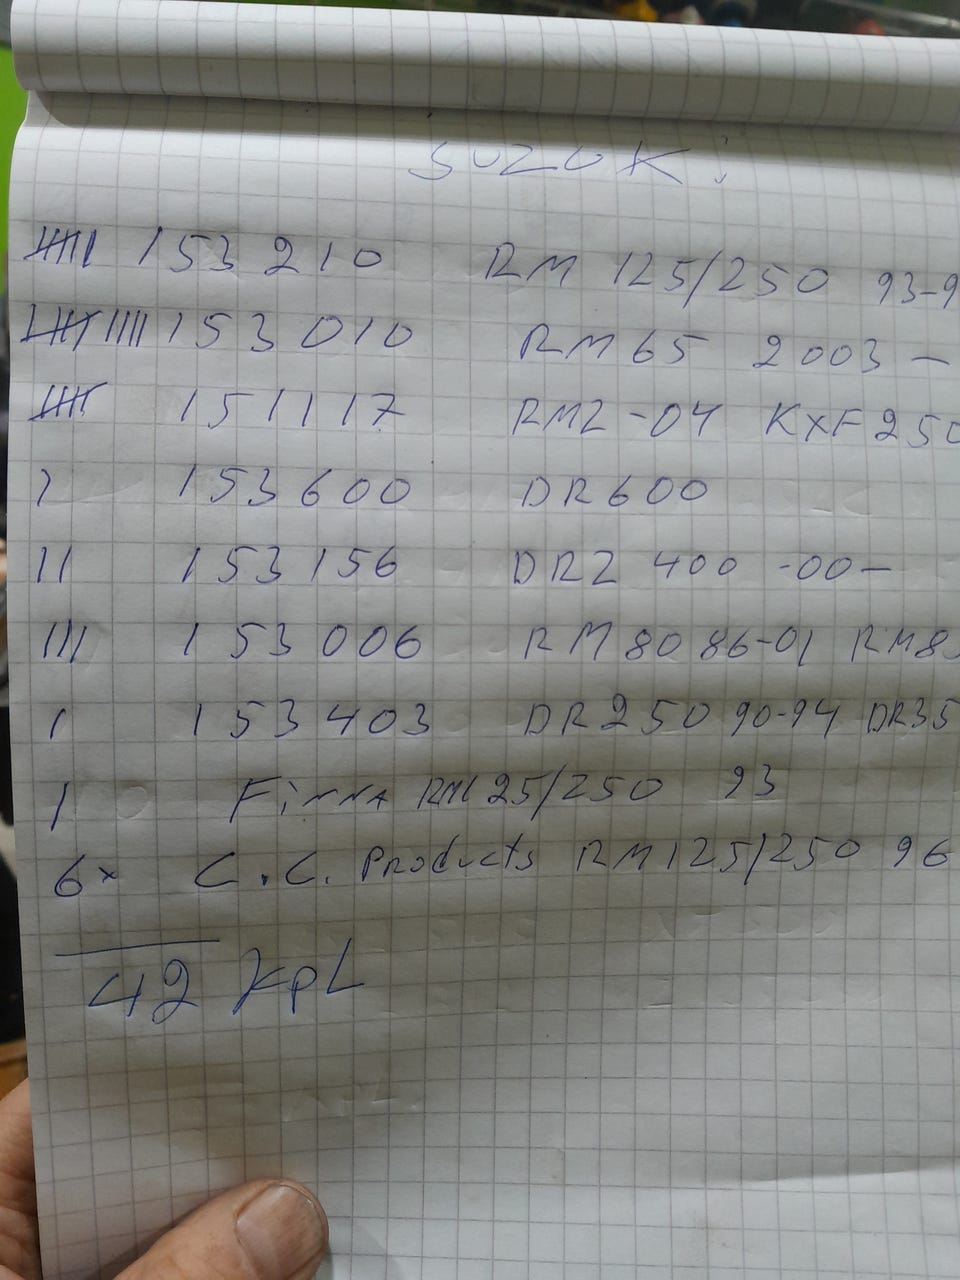 SUZUKi
𝍸| 153210 RM 125/250 93-9
𝍸|||| 153010 RM65 2003 -
𝍸 151117 RMZ -04 KXF250
1 153600 DR600
11 153156 DRZ 400 -00-
111 153006 RM80 86-01 RM8
1 153403 DR250 90-94 DR35
1 RM125/250 93
6x C.C. Products RM125/250 96
42 KpL